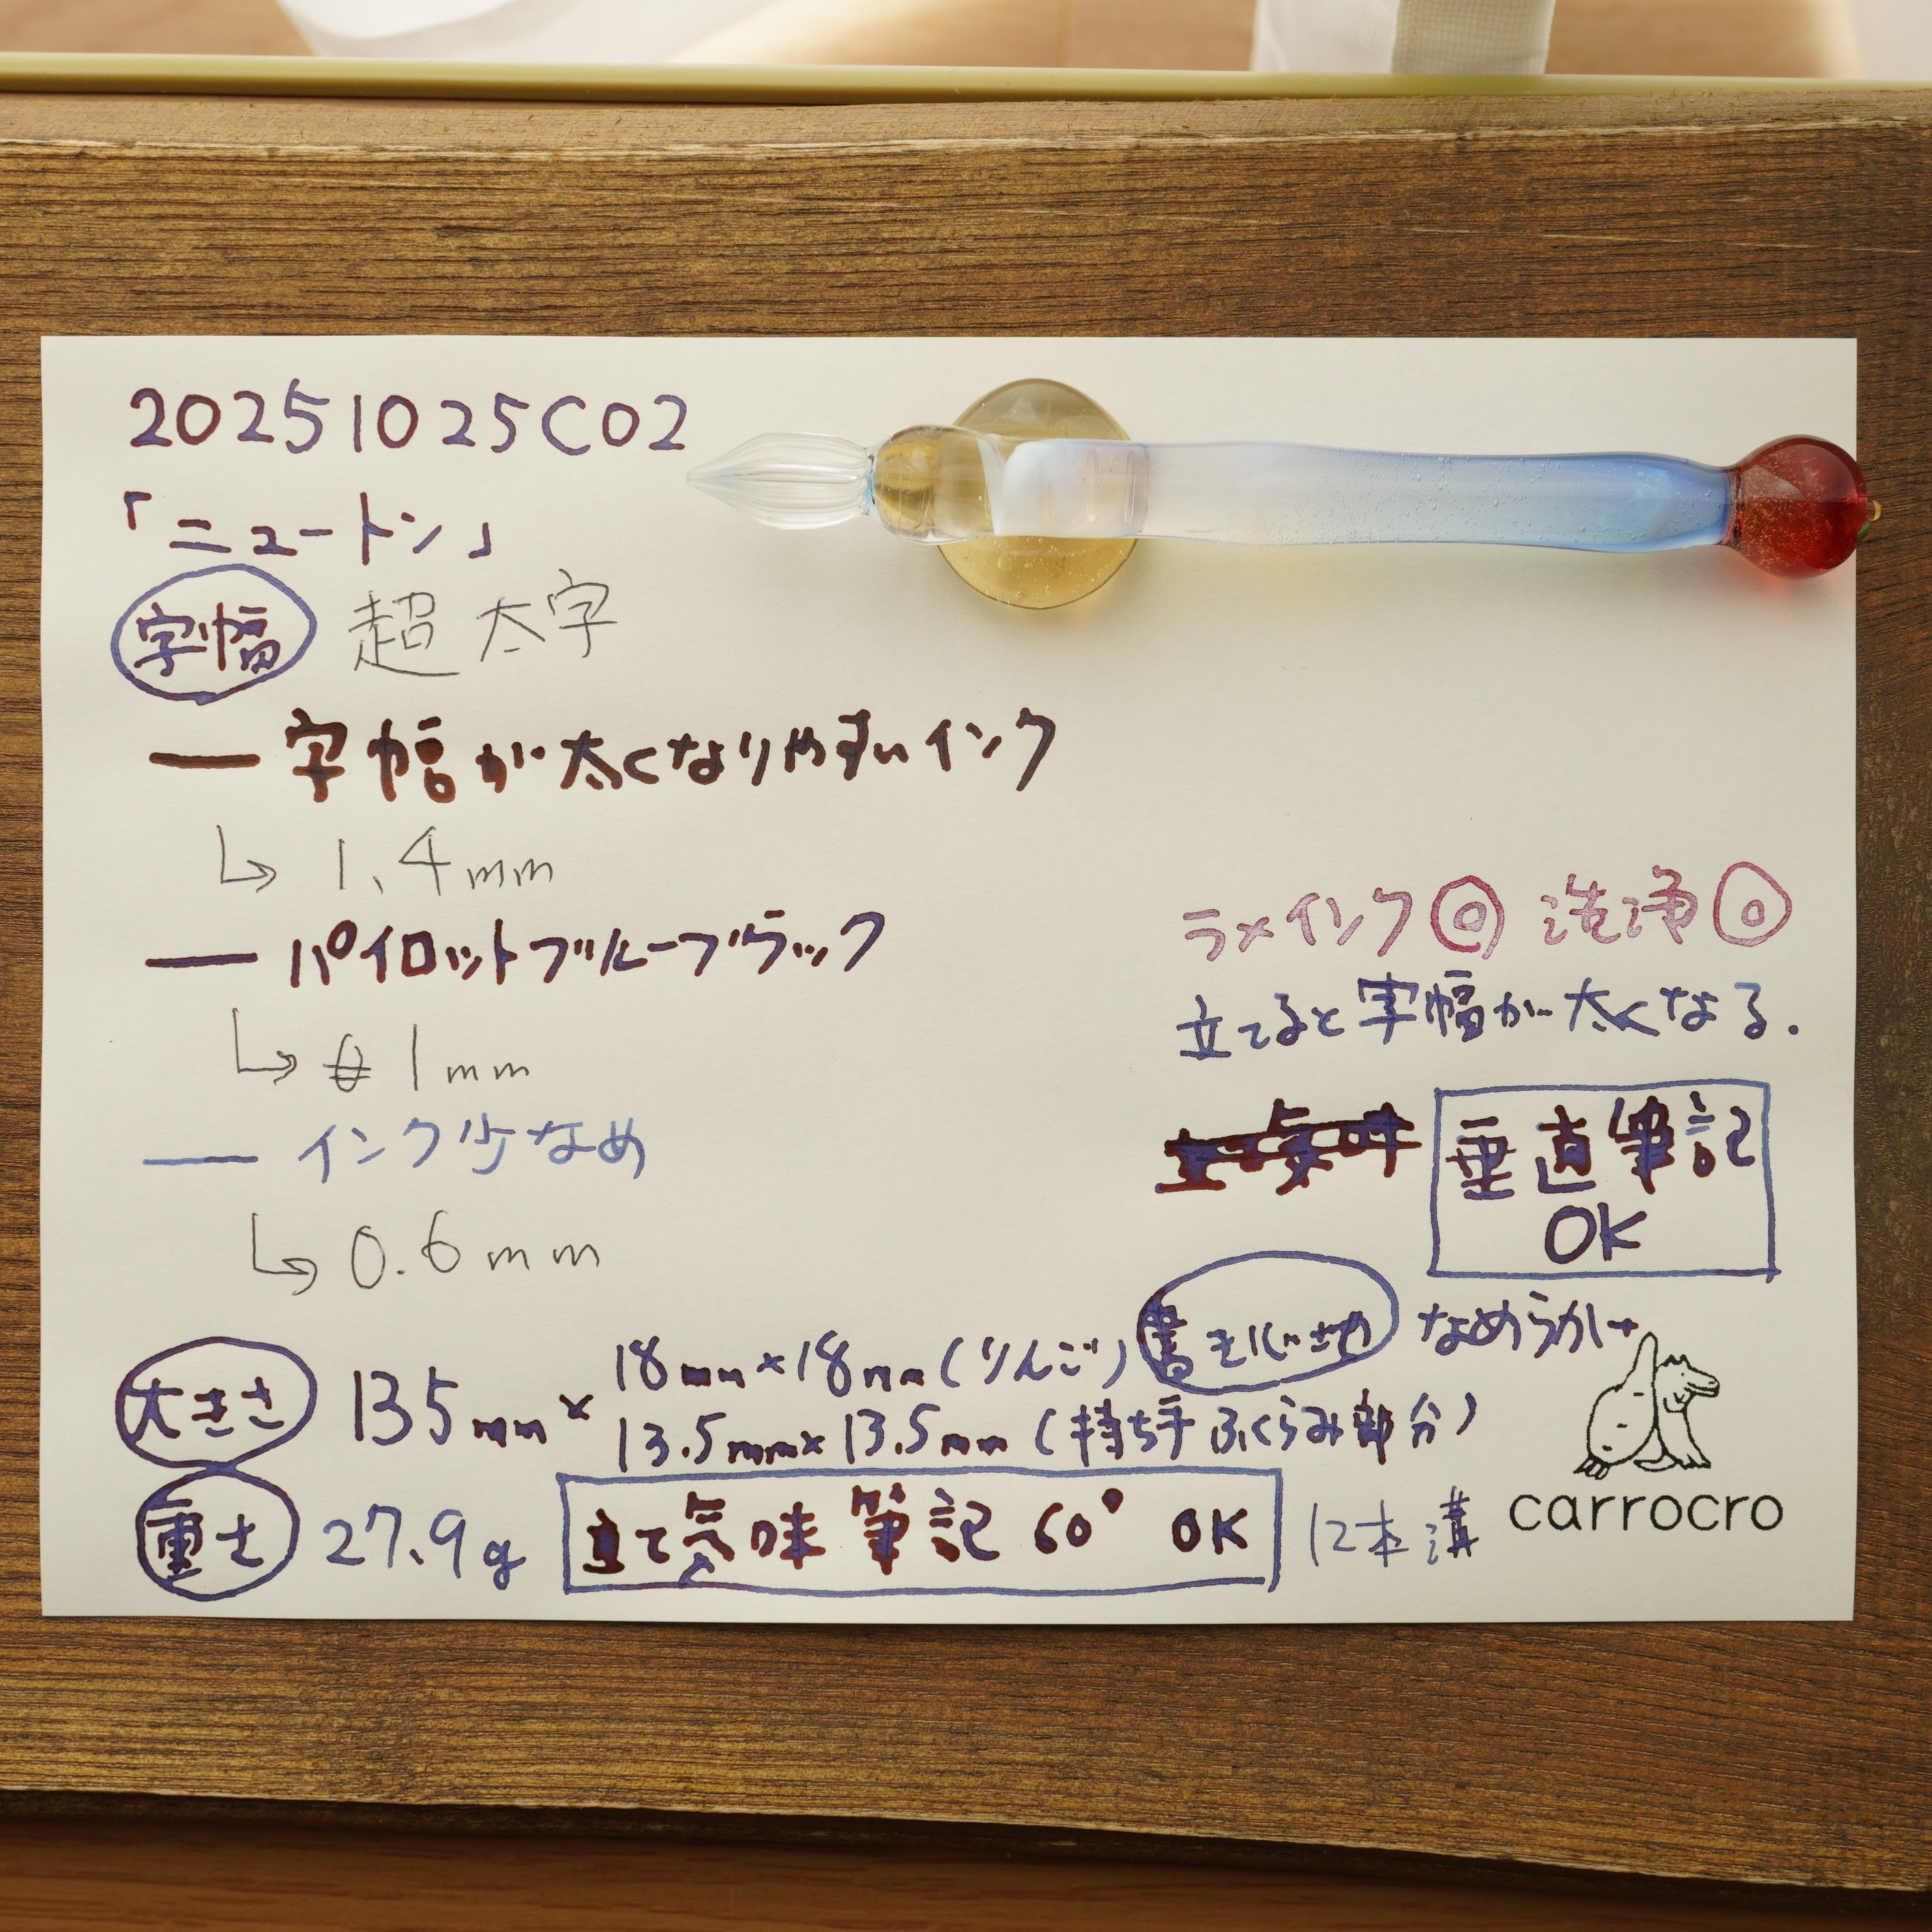 20251025C02
「ニュートン」
字幅 超太字
字幅が太くなりやすいインク
↳ 1.4mm
パイロットブルーブラック
↳ 1mm
インク少なめ
↳ 0.6mm
ラメインク◎ 洗浄◎
立てると字幅が太くなる.
垂直筆記
OK
書きごこち なめらか→
大きさ 135mm×
18mm×18mm(りんご)
13.5mm×13.5mm(持ち手ふくらみ部分)
重さ 27.9g
立て気味筆記60° OK
12本溝
carrocro